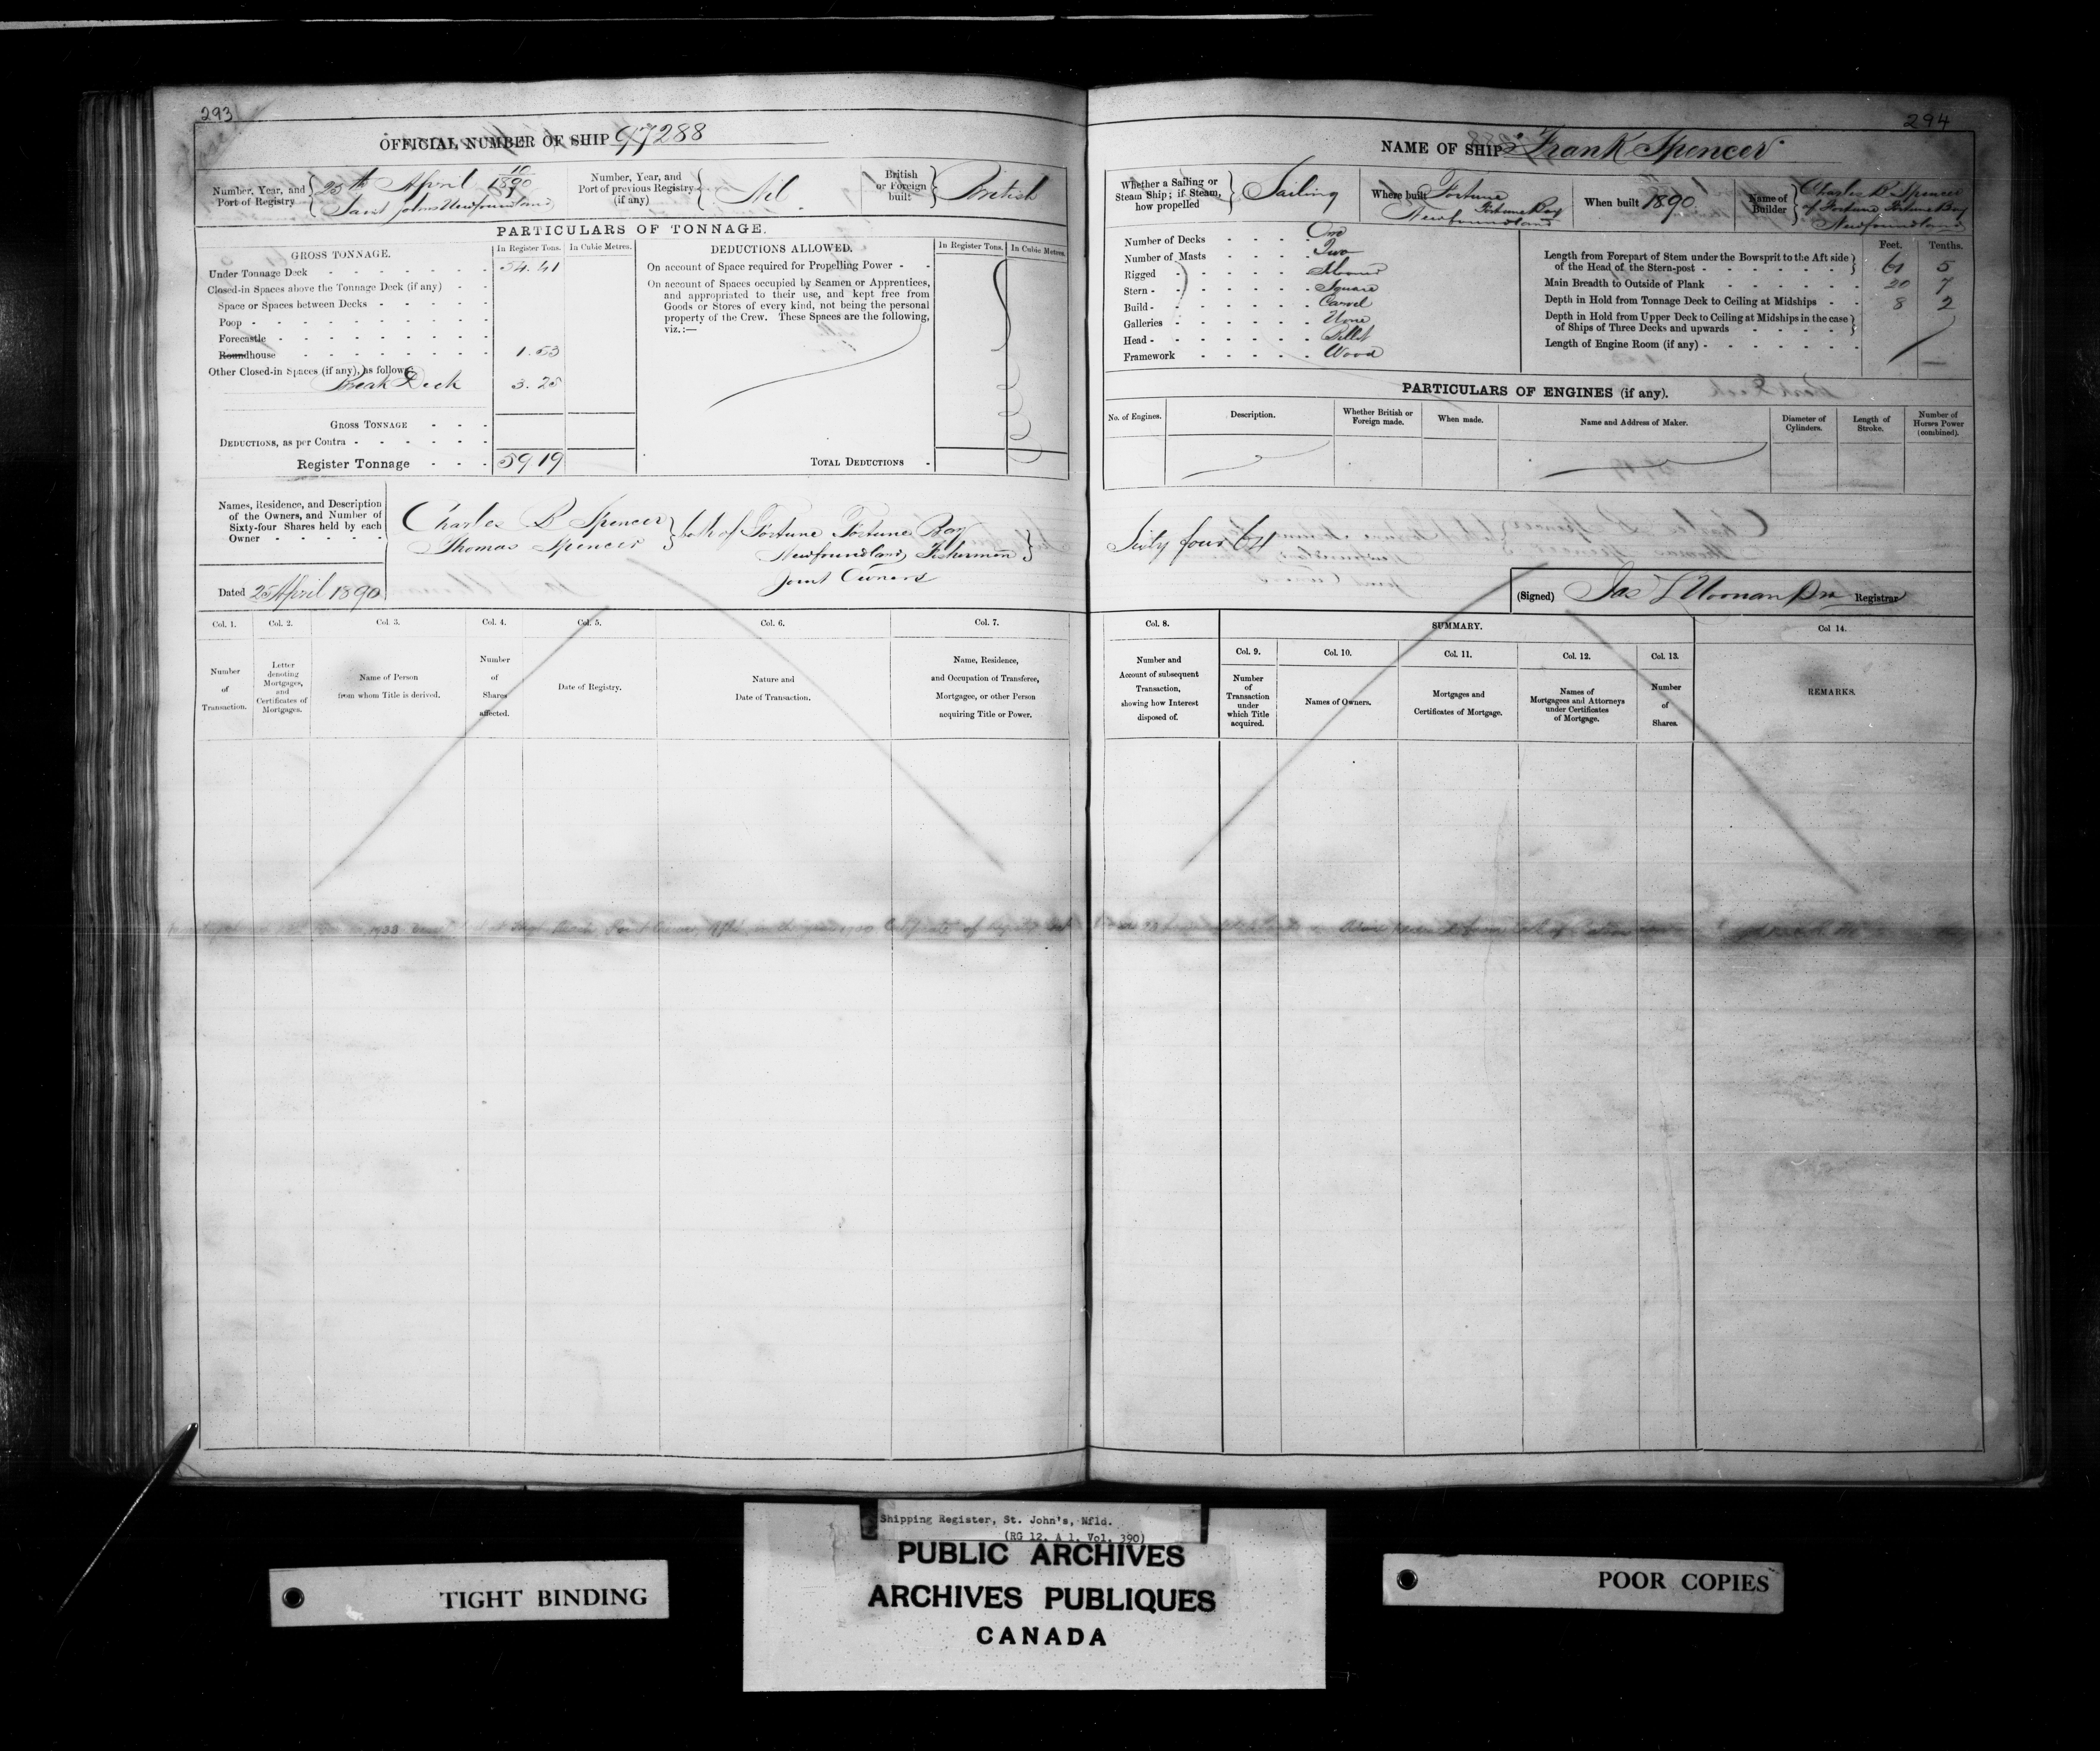 293
OFFICIAL NUMBER OF SHIP 97288
Number, Year, and Port of Registry
25th April 1890
Saint Johns Newfoundland
Number, Year, and Port of previous Registry (if any)
Nil
British or Foreign built
British
PARTICULARS OF TONNAGE.
GROSS TONNAGE.
In Register Tons.
In Cubic Metres.
Under Tonnage Deck 54.41
Closed-in Spaces above the Tonnage Deck (if any)
Space or Spaces between Decks
Poop
Forecastle
Roundhouse 1.53
Other Closed-in Spaces (if any), as follows
Break Deck 3.25
GROSS TONNAGE
DEDUCTIONS, as per Contra
Register Tonnage 59 19
DEDUCTIONS ALLOWED.
In Register Tons.
In Cubic Metres.
On account of Space required for Propelling Power
On account of Spaces occupied by Seamen or Apprentices,
and appropriated to their use, and kept free from
Goods or Stores of every kind, not being the personal
property of the Crew. These Spaces are the following,
viz.:—
TOTAL DEDUCTIONS
Names, Residence, and Description
of the Owners, and Number of
Sixty-four Shares held by each
Owner
Charles B Spencer
Thomas Spencer
both of Fortune Fortune Bay
Newfoundland, Fishermen
Joint Owners
Dated 25 April 1890
Col. 1.
Number of Transaction.
Col. 2.
Letter denoting Mortgages, and Certificates of Mortgages.
Col. 3.
Name of Person from whom Title is derived.
Col. 4.
Number of Shares affected.
Col. 5.
Date of Registry.
Col. 6.
Nature and Date of Transaction.
Col. 7.
Name, Residence, and Occupation of Transferee, Mortgagee, or other Person acquiring Title or Power.
294
NAME OF SHIP Frank Spencer
Whether a Sailing or Steam Ship; if Steam, how propelled
Sailing
Where built
Fortune
Fortune Bay
Newfoundland
When built 1890
Name of Builder
Charles B Spencer
of Fortune Fortune Bay
Newfoundland
Number of Decks One
Number of Masts Two
Rigged
Stern Square
Build Carvel
Galleries None
Head Billet
Framework Wood
Feet. Tenths.
Length from Forepart of Stem under the Bowsprit to the Aft side
of the Head of the Stern-post 61 5
Main Breadth to Outside of Plank 20 7
Depth in Hold from Tonnage Deck to Ceiling at Midships 8 2
Depth in Hold from Upper Deck to Ceiling at Midships in the case
of Ships of Three Decks and upwards
Length of Engine Room (if any)
PARTICULARS OF ENGINES (if any).
No. of Engines.
Description.
Whether British or Foreign made.
When made.
Name and Address of Maker.
Diameter of Cylinders.
Length of Stroke.
Number of Horses Power (combined).
Sixty four 64
(Signed) Registrar
Col. 8.
Number and Account of subsequent Transaction, showing how Interest disposed of.
SUMMARY.
Col. 9.
Number of Transaction under which Title acquired.
Col. 10.
Names of Owners.
Col. 11.
Mortgages and Certificates of Mortgage.
Col. 12.
Names of Mortgagees and Attorneys under Certificates of Mortgage.
Col. 13.
Number of Shares.
Col 14.
REMARKS.
Shipping Register, St. John's, Nfld.
(RG 12, A 1, Vol. 390)
PUBLIC ARCHIVES
ARCHIVES PUBLIQUES
CANADA
TIGHT BINDING
POOR COPIES